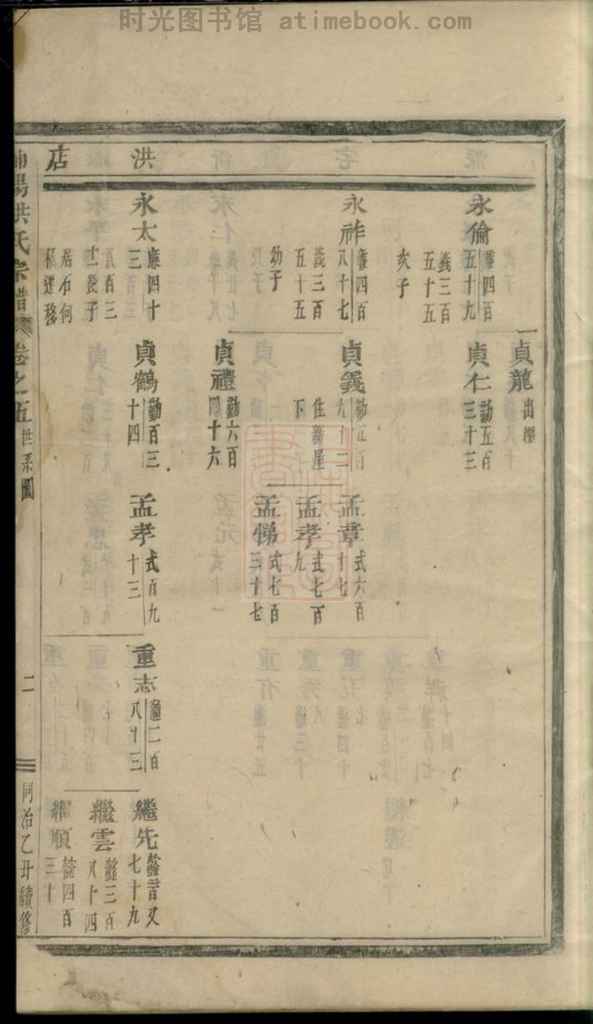 时光图书馆 atimebook.com
洪店
貞龍 出壢
永倫 廉四百五十九
義三百五十五
次子
貞仁 勤五百三十三
永祚 廉四百八十七
義三百五十五
幼子
貞義 勤五百九十二
住新屋下
孟章 式六百十七
孟孝 式七百九
孟悌 式七百三十七
貞禮 勤六百四十六
永太 廉四十三
義百三十二長子
居石何
移
貞鶴 勤百三十四
孟孝 式百九十三
重志 儀二百八十三
繼先 七十九
繼雲 三百八十四
繼順 四百三十
陽洪氏宗譜 卷之五 世系圖
二
同治乙丑續修